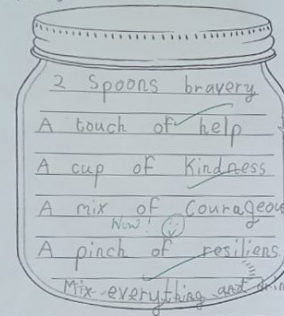 2 Spoons bravery
A touch of help
A cup of Kindness
A mix of Courageou
Now!
A pinch of resiliens
Mix everything and drin